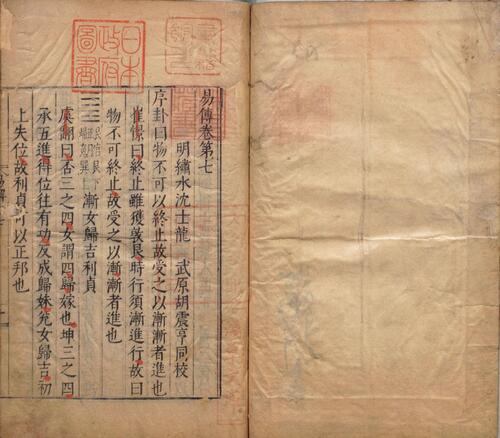 易傳卷第七
明繡水沈士龍 武原胡震亨同校
序卦曰物不可以終止故受之以漸漸者進也
崔憬曰終止雖獲敦艮時行須漸進行故曰
物不可終止故受之以漸漸者進也
漸女歸吉利貞
虞翻曰否三之四女謂四歸嫁也坤三之四
承五進得位往有功反成歸妹兊女歸吉初
上失位故利貞可以正邦也
日本
政府
圖書